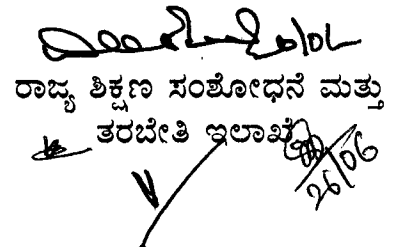 ರಾಜ್ಯ ಶಿಕ್ಷಣ ಸಂಶೋಧನೆ ಮತ್ತು
ತರಬೇತಿ ಇಲಾಖೆ
26/06